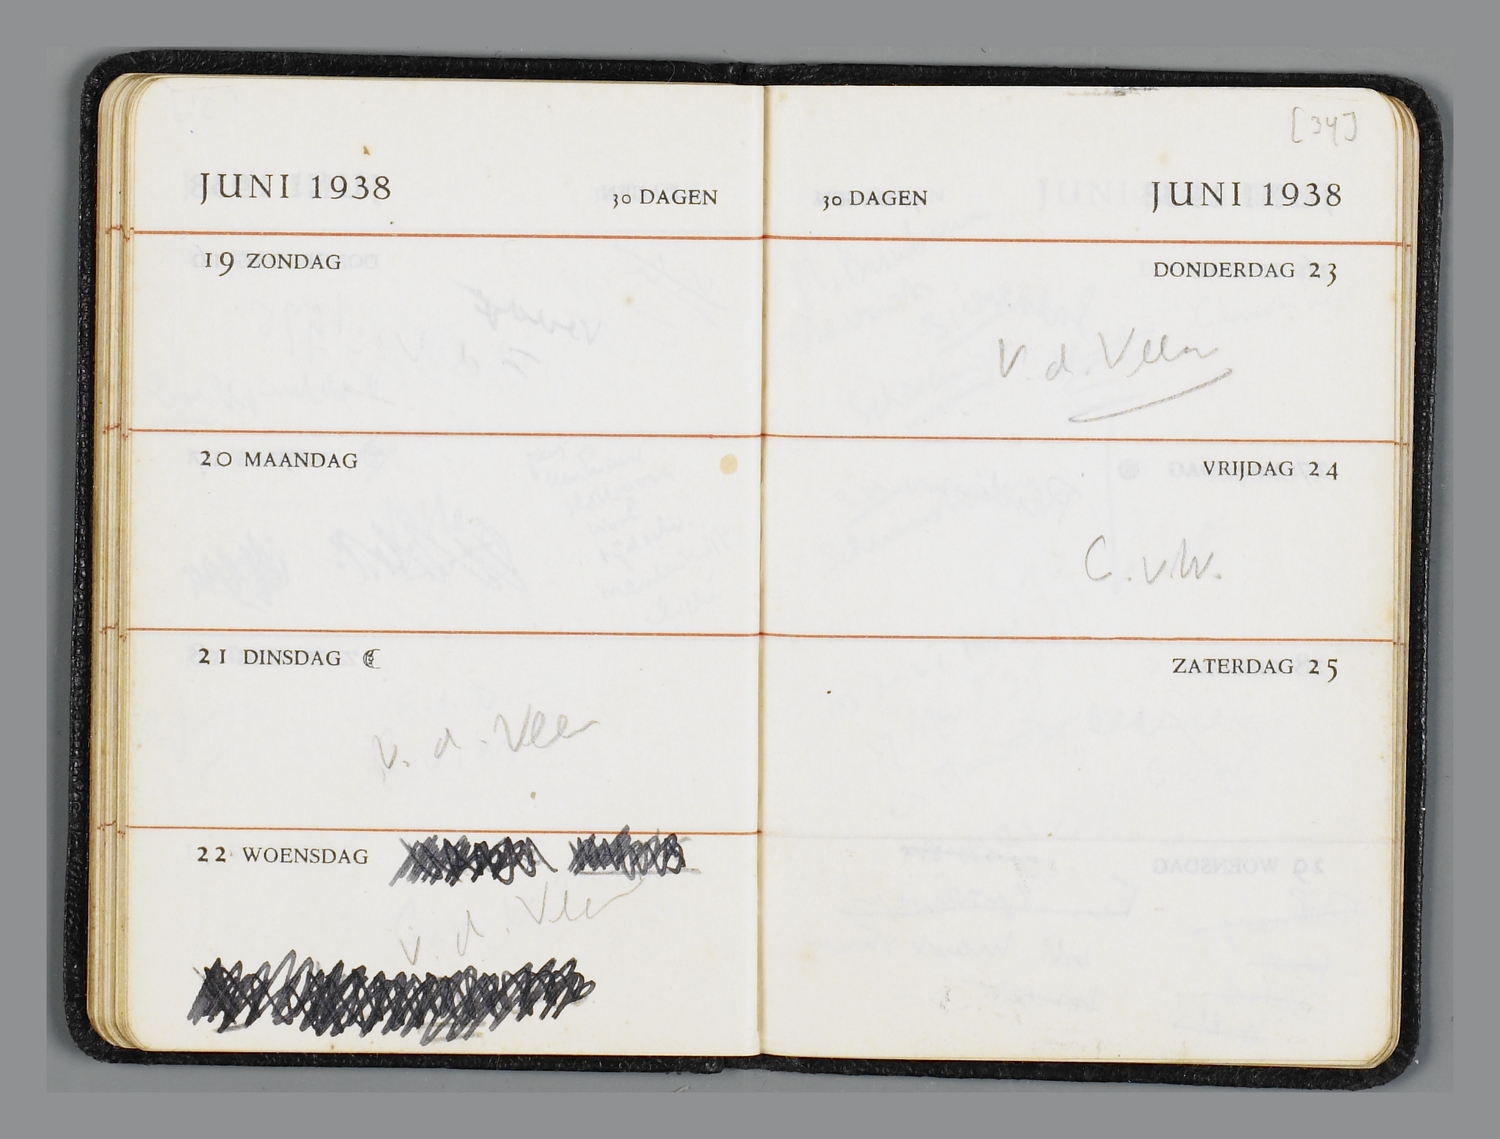 JUNI 1938
30 DAGEN
19 ZONDAG
20 MAANDAG
21 DINSDAG
v. d. Veer
22 WOENSDAG
v. d. Veer
[34]
30 DAGEN
JUNI 1938
DONDERDAG 23
V. d. Veer
VRIJDAG 24
C. v. W.
ZATERDAG 25